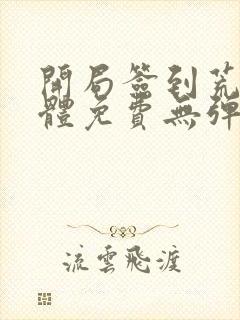 開局簽到荒
體免費無彈
流雲飛渡